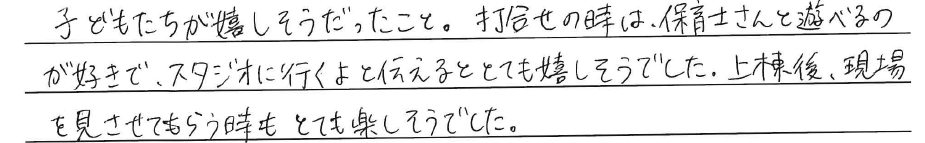 子どもたちが嬉しそうだったこと。打合せの時は、保育士さんと遊べるの
が好きで、スタジオに行くよと伝えるととても嬉しそうでした。上棟後、現場
を見させてもらう時も とても楽しそうでした。